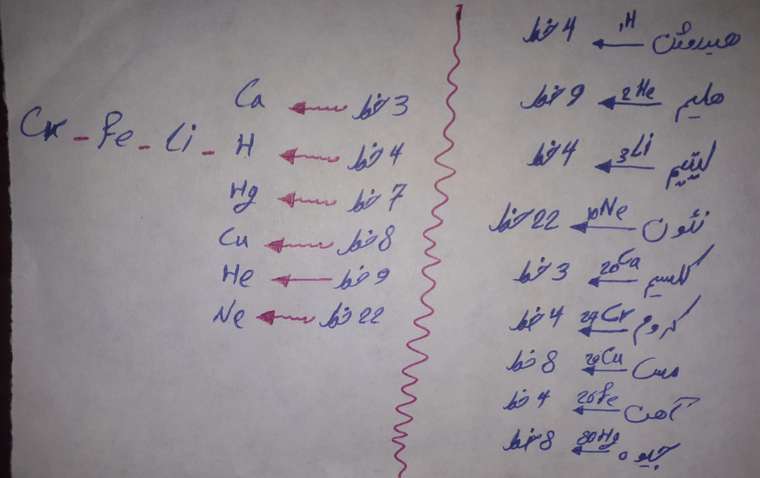 هیدروژن ← ₁H 4 خط
هلیم ← ₂He 9 خط
لیتیم ← ₃Li 4 خط
نئون ← ₁₀Ne 22 خط
کلسیم ← ₂₀Ca 3 خط
کروم ← ₂₄Cr 4 خط
مس ← ₂₉Cu 8 خط
آهن ← ₂₆Fe 4 خط
جیوه ← ₈₀Hg 8 خط
3 خط ← Ca
4 خط ← H - Li - Fe - Cr
7 خط ← Hg
8 خط ← Cu
9 خط ← He
22 خط ← Ne